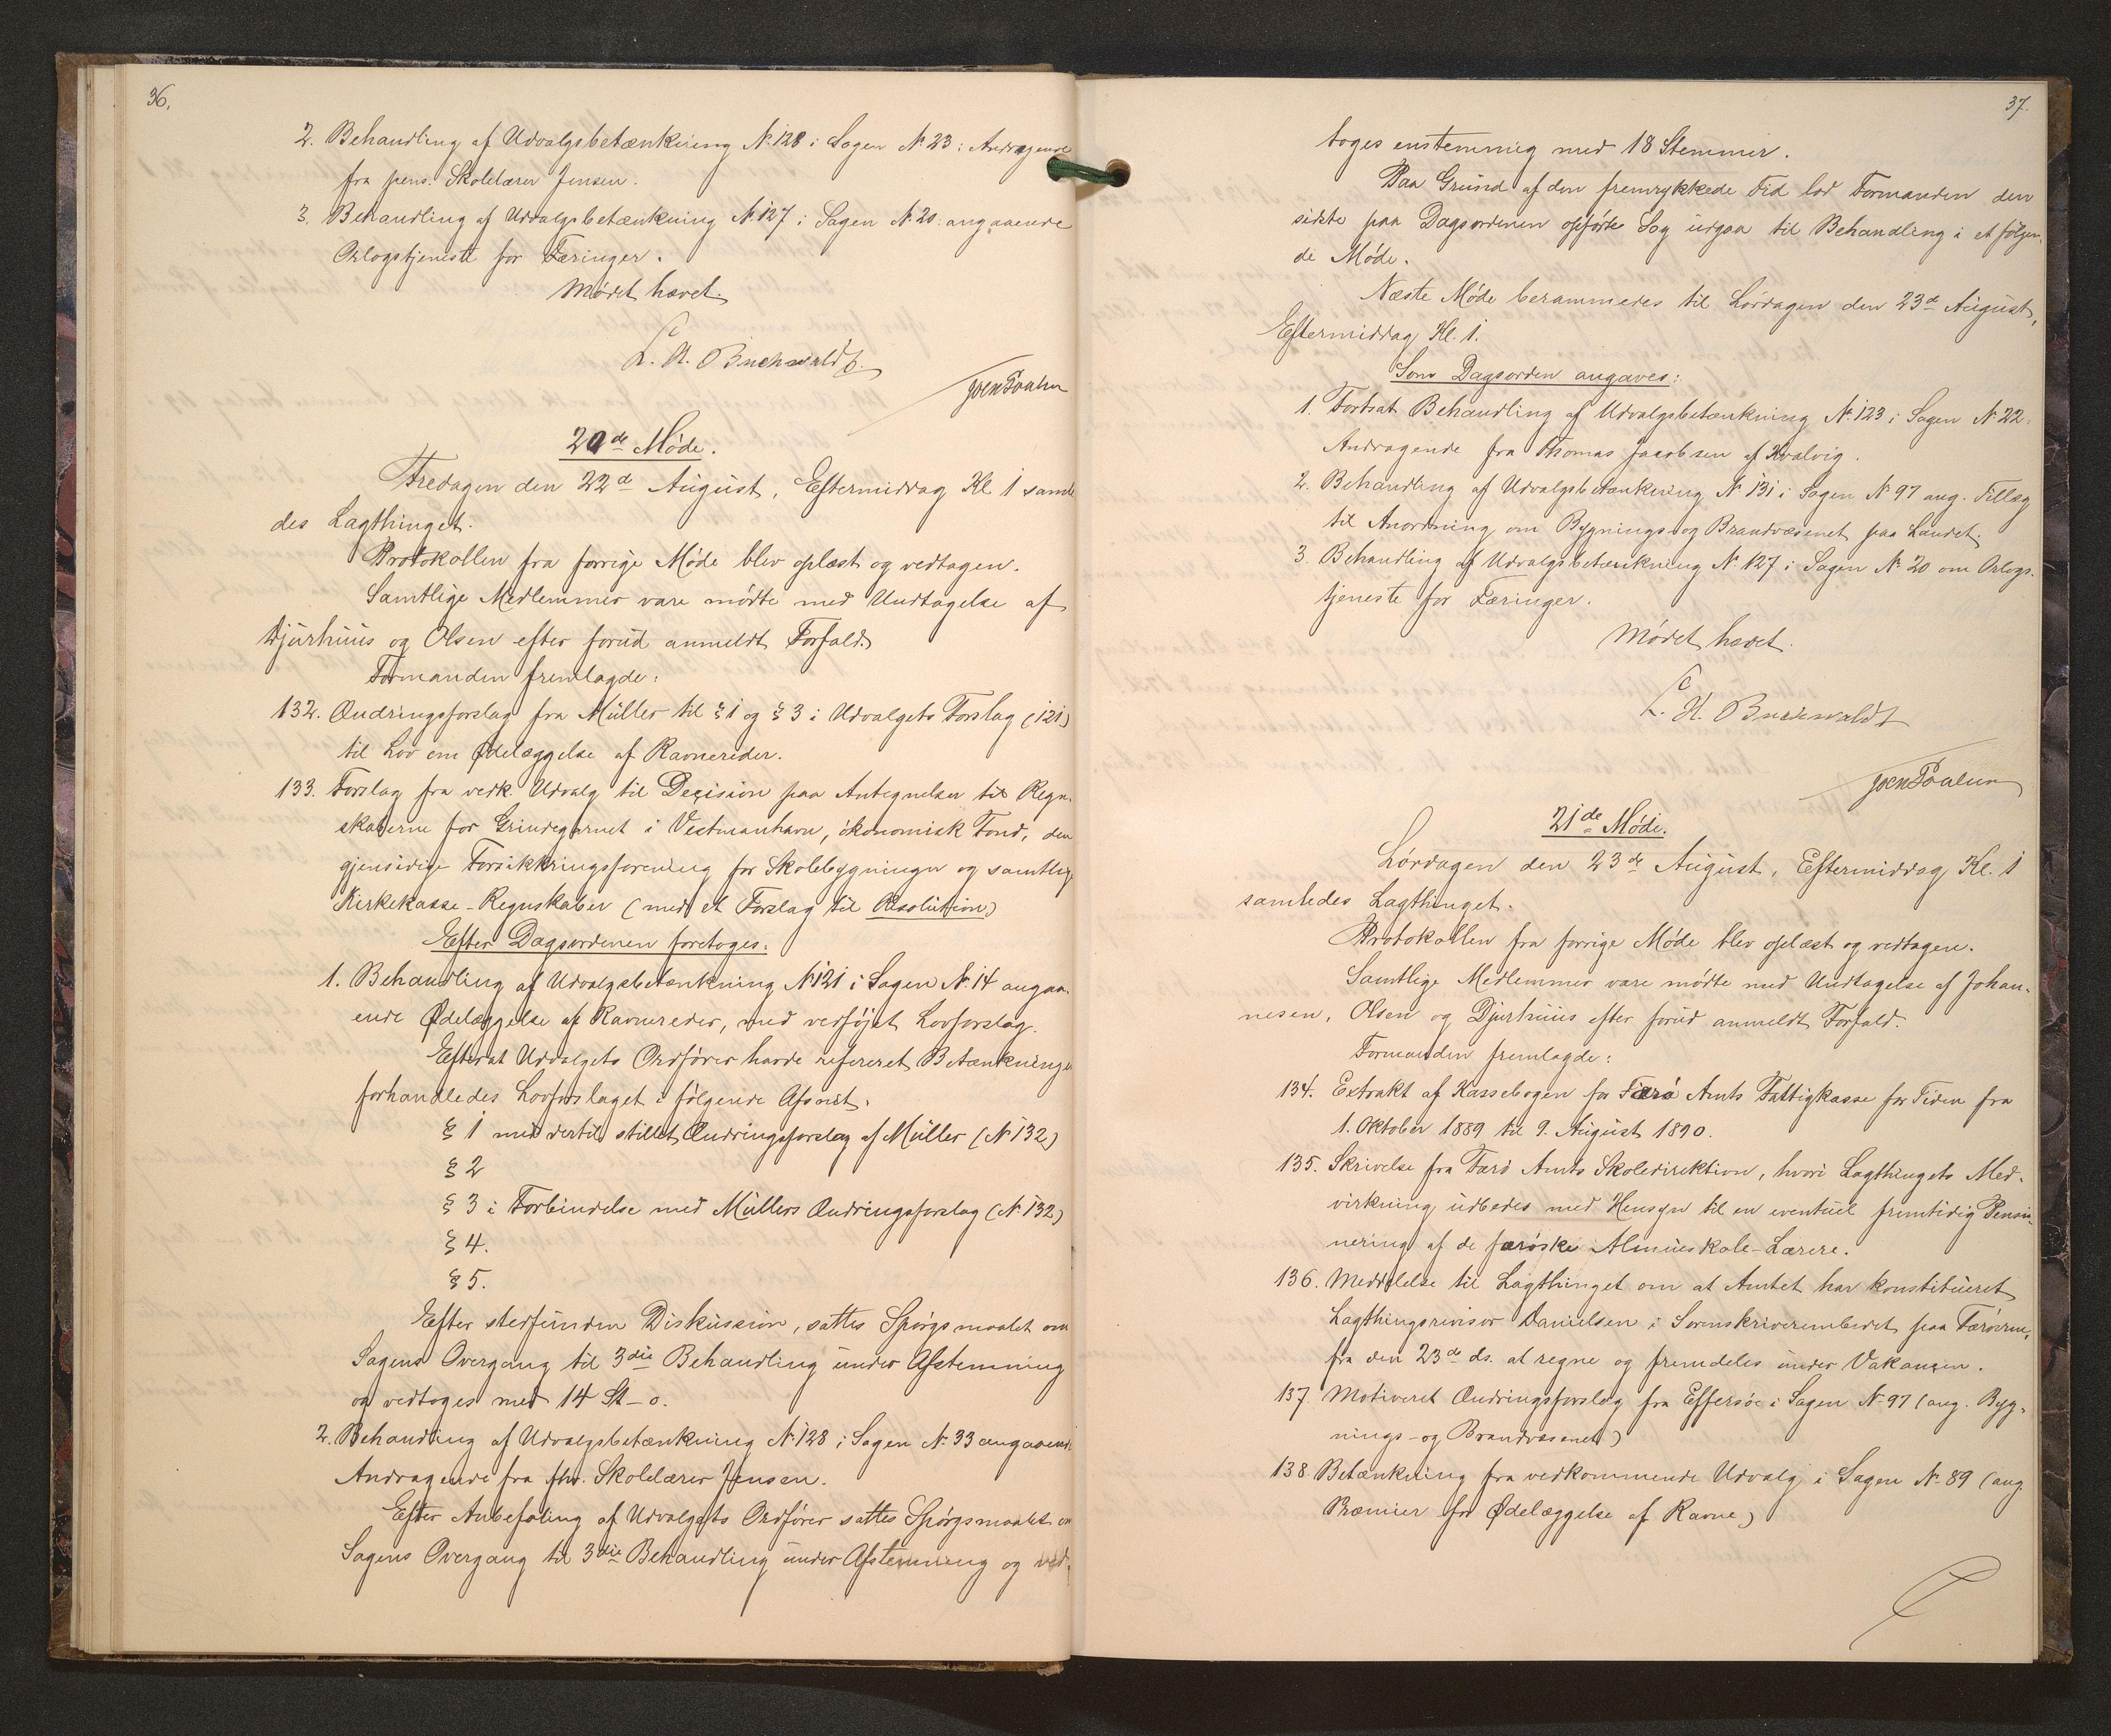 36.
2. Behandling af Udvalgsbetænkning № 128 i Sagen № 23: Andragende
fra pens. Skolelærer Jensen.
3. Behandling af Udvalgsbetænkning № 127 i Sagen № 20. angaaende
Orlogstjeneste for Færinger.
Mødet hævet.
C.
L. H. Buchwaldt.
Joen Poulsen
20de Møde.
Fredagen den 22d August, Eftermiddag Kl. 1 samle
des Lagthinget.
Protokollen fra forrige Møde blev oplæst og vedtagen.
Samtlige Medlemmer vare mødte med Undtagelse af
Djurhuus og Olsen efter forud anmeldt Forfald.
Formanden fremlagde:
132. Ændringsforslag fra Müller til § 1 og § 3 i Udvalgets Forslag (121)
til Lov om Ødelæggelse af Ravnereder.
133. Forslag fra vedk. Udvalg til Decision paa Antegnelser til Regn-
skaberne for Grindegarnet i Vestmanhavn, økonomisk Fond, den
gjensidige Forsikkringsforening for Skolebygninger og samtlige
Kirkekasse-Regnskaber (med et Forslag til Resolution)
Efter Dagsordenen foretoges:
1. Behandling af Udvalgsbetænkning № 121 i Sagen № 14 angaa-
ende Ødelæggelse af Ravnereder, med vedføjet Lovforslag.
Efterat Udvalgets Ordfører havde refereret Betænkningen
forhandledes Lovforslaget i følgende Afsnit.
§ 1 med dertil stillet Ændringsforslag af Müller (№ 132)
§ 2
§ 3 i Forbindelse med Müllers Ændringsforslag (№ 132)
§ 4.
§ 5.
Efter stedfunden Diskussion, sattes Spørgsmaalet om
Sagens Overgang til 3die Behandling under Afstemning
og vedtoges med 14 St - 0.
2. Behandling af Udvalgsbetænkning № 128 i Sagen № 33 angaaende
Andragende fra fhv. Skolelærer Jensen.
Efter Anbefaling af Udvalgets Ordfører sattes Spørgsmaalet om
Sagens Overgang til 3die Behandling under Afstemning og ved-
37.
toges enstemmig med 18 Stemmer.
Paa Grund af den fremrykkede Tid lod Formanden den
sidste paa Dagsordenen opførte Sag udgaa til Behandling i et følgen-
de Møde.
Næste Møde berammedes til Lørdagen den 23d August,
Eftermiddag Kl. 1.
Som Dagsorden angaves:
1. Fortsat Behandling af Udvalgsbetænkning № 123 i Sagen № 22.
Andragende fra Thomas Jacobsen af Kvalvig.
2. Behandling af Udvalgsbetænkning № 131 i Sagen № 97 ang. Tillæg
til Anordning om Bygnings- og Brandvæsenet paa Landet.
3. Behandling af Udvalgsbetænkning № 127 i Sagen № 20 om Orlogs-
tjeneste for Færinger.
Mødet hævet.
C.
L. H. Buchwaldt
Joen Poulsen
21de Møde.
Lørdagen den 23de August, Eftermiddag Kl. 1
samledes Lagthinget.
Protokollen fra forrige Møde blev oplæst og vedtagen.
Samtlige Medlemmer vare mødte med Undtagelse af Johan-
nesen, Olsen og Djurhuus efter forud anmeldt Forfald.
Formanden fremlagde:
134. Extrakt af Kassebogen for Færø Amts Fattigkasse for Tiden fra
1. Oktober 1889 til 9. August 1890.
135. Skrivelse fra Færø Amts Skoledirektion, hvori Lagthingets Med-
virkning udbedes med Hensyn til en eventuel fremtidig Pensio-
nering af de færøske Almueskole-Lærere.
136. Meddelelse til Lagthinget om at Amtet har konstitueret
Lagthingsrevisor Danielsen i Sorenskriverembedet paa Færøerne,
fra den 23de ds. at regne og fremdeles under Vakancen.
137. Motiveret Ændringsforslag fra Effersøe i Sagen № 97 (ang. Byg-
nings- og Brandvæsenet)
138. Betænkning fra vedkommende Udvalg i Sagen № 89 (ang.
Præmier for Ødelæggelse af Ravne)